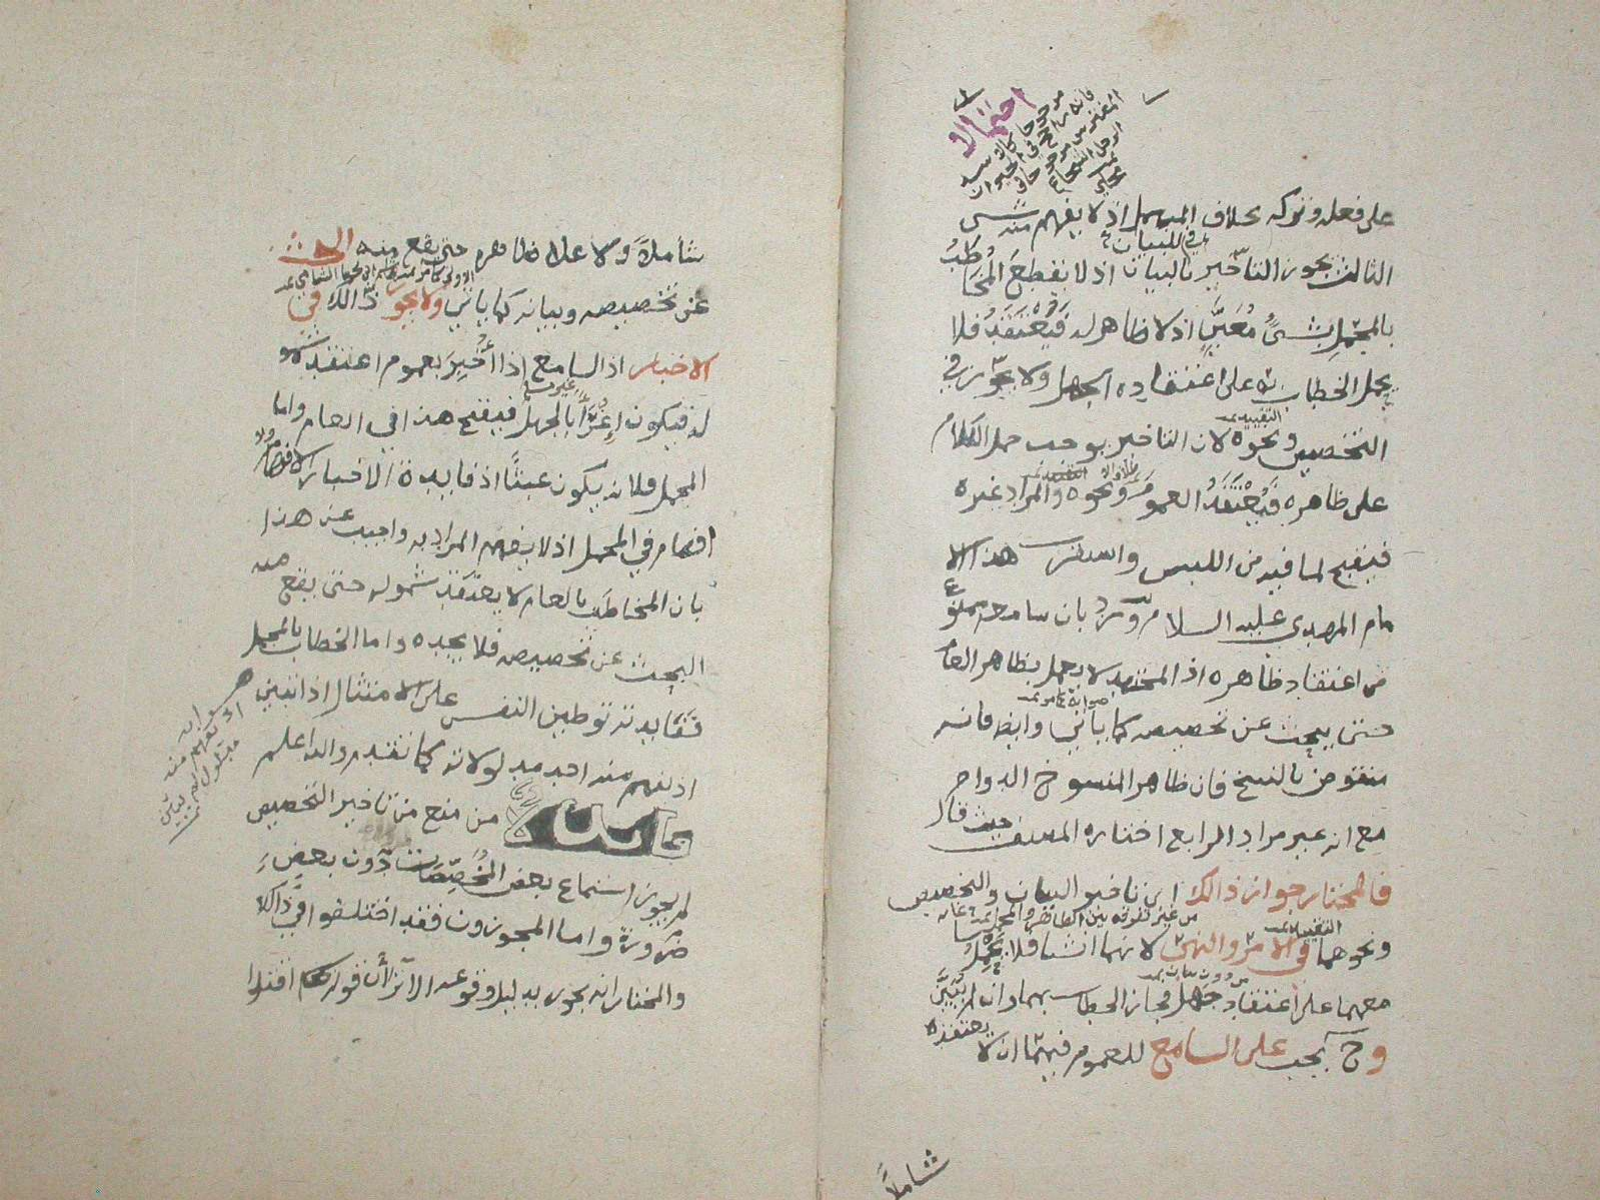 احتمالا
مرجوحا كالاسد
فانه راجح في الحيوان
المفترس مرجوح في
الرجل الشجاع
على فعله وتركه بخلاف المهمل اذ لا يفهم منه شيء
الثالث يجوز التأخير بالبيان اذ لا يقطع المُخَاطَبُ
بالمجمل بشيءٍ مُعَيَّنٍ اذ لا ظاهر له فَيُعْتَقَدُ فلا
يحمل الخطاب به على اعتقاده الجهل ولا يجوز في
التخصيص ونحوه لان التاخير يوجب حمل الكلام
على ظاهره فَيُعْتَقَدُ العموم ونحوه والمراد غيره
فيقبح لما فيه من اللبس هذا الا
مام المهدي عليه السلام ورد بان سامعه ممنوع
من اعتقاد ظاهره اذ المجتهد لا يعمل بظاهر العام
حتى يبحث عن تخصيصه كما ياتي وايضا فانه
منقوض بالنسخ فان ظاهر المنسوخ الدوام
مع انه غير مراد الرابع اختاره المصنف حيث قال
فالمختار جواز ذالك اي تاخير البيان والتخصيص
من غير تفرقة بين الظاهر والمجمل
ونحوهما في الامر والنهي لانهما انشا فلا يَحْمِلُ
معهما على اعتقاد جَهْلٍ فجاز الخطاب بهما وان لم يُبَيَّنْ
وح يجب على السامع للعموم فيهما ان لا يعتقده
شاملاً
شاملاً ولا علا ظاهره حتى يقع منه البحث
عن تخصيصه وبيانه كما ياتي ولا يجوز ذالك في
الاخبار اذ السامع اذا أُخْبِرَ بعموم اعتقد شمو
له فيكون إغراءً بالجهل فيقبح هذا في العام واما
المجمل فلانه يكون عبثًا اذ فايدة الاخبار الافهام ولا
افهام في المجمل اذ لا يفهم المراد به واجيب عن هذا
بان المخاطَب بالعام لا يعتقد شموله حتى يقع منه
البحث عن تخصيصه فلا يجده واما الخطاب بالمجمل
فَفَايدته توطين النفس على الامتثال اذا تبين
اذ يفهم منه احد مدلولاته كما تقدم والله اعلم
من منع من تاخير التخصيص
لم يجوز استماع بعض المُخَصِّصَات دون بعضٍ
ضرورة واما المجوزون فقد اختلفوا في ذالك
والمختار انه يجوز بدليل وقوعه الا ترا أن قوله تعالى اقتلوا